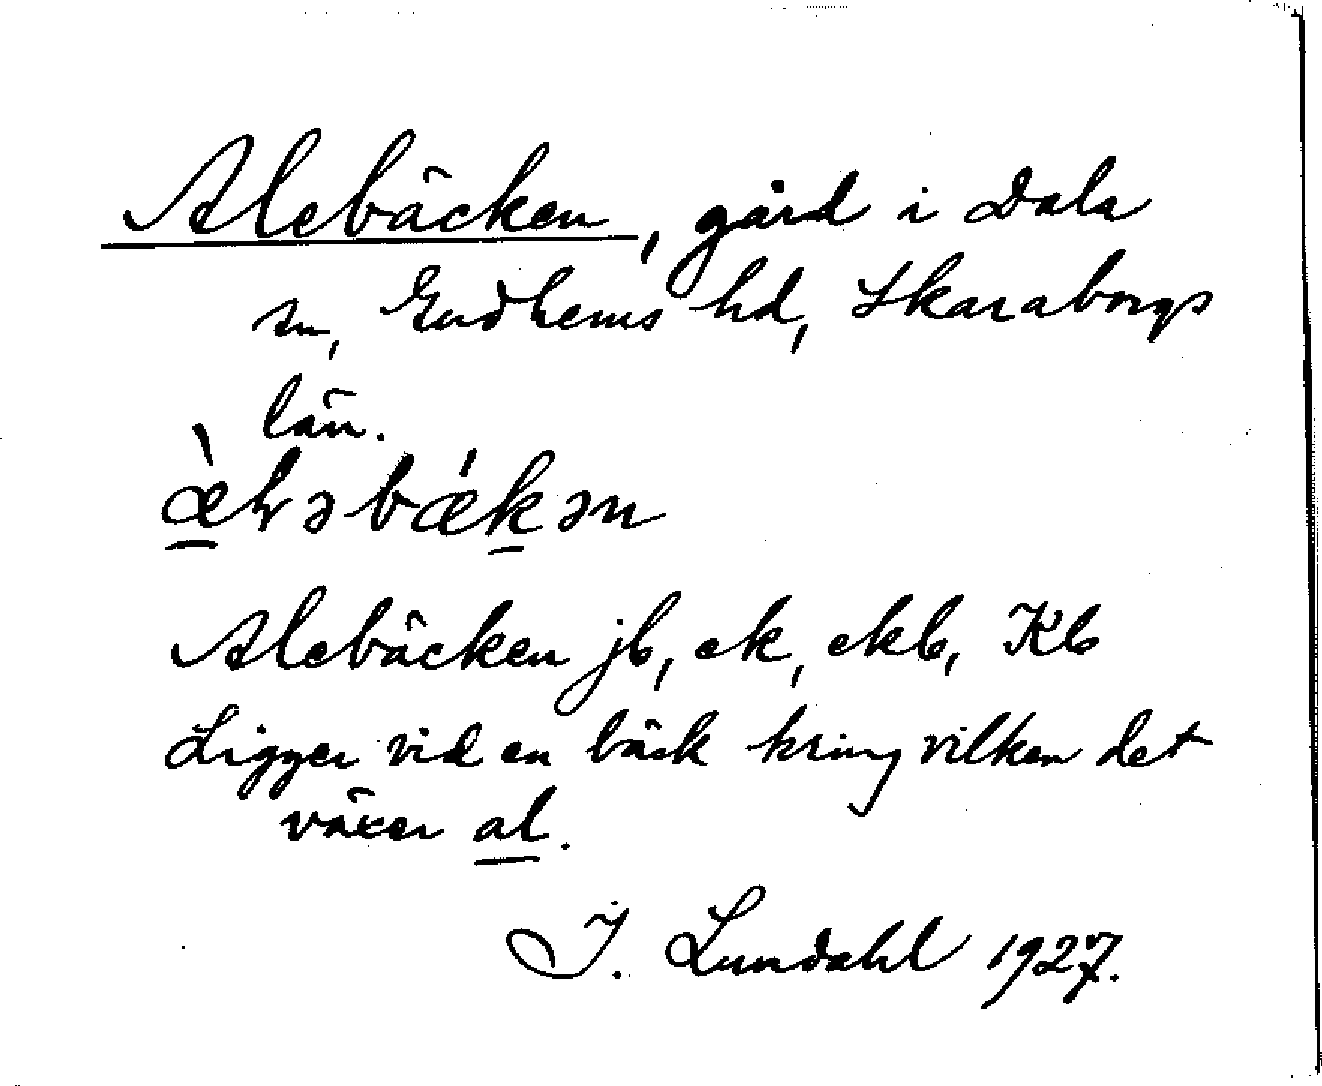 Alebäcken, gård i Dala
sn, Gudhems hd, Skaraborgs
län.
æ̀ləbækən
Alebäcken jb, ek, ekb, Kb
Ligger vid en bäck kring vilken det
växer al.
I. Lundahl 1927.